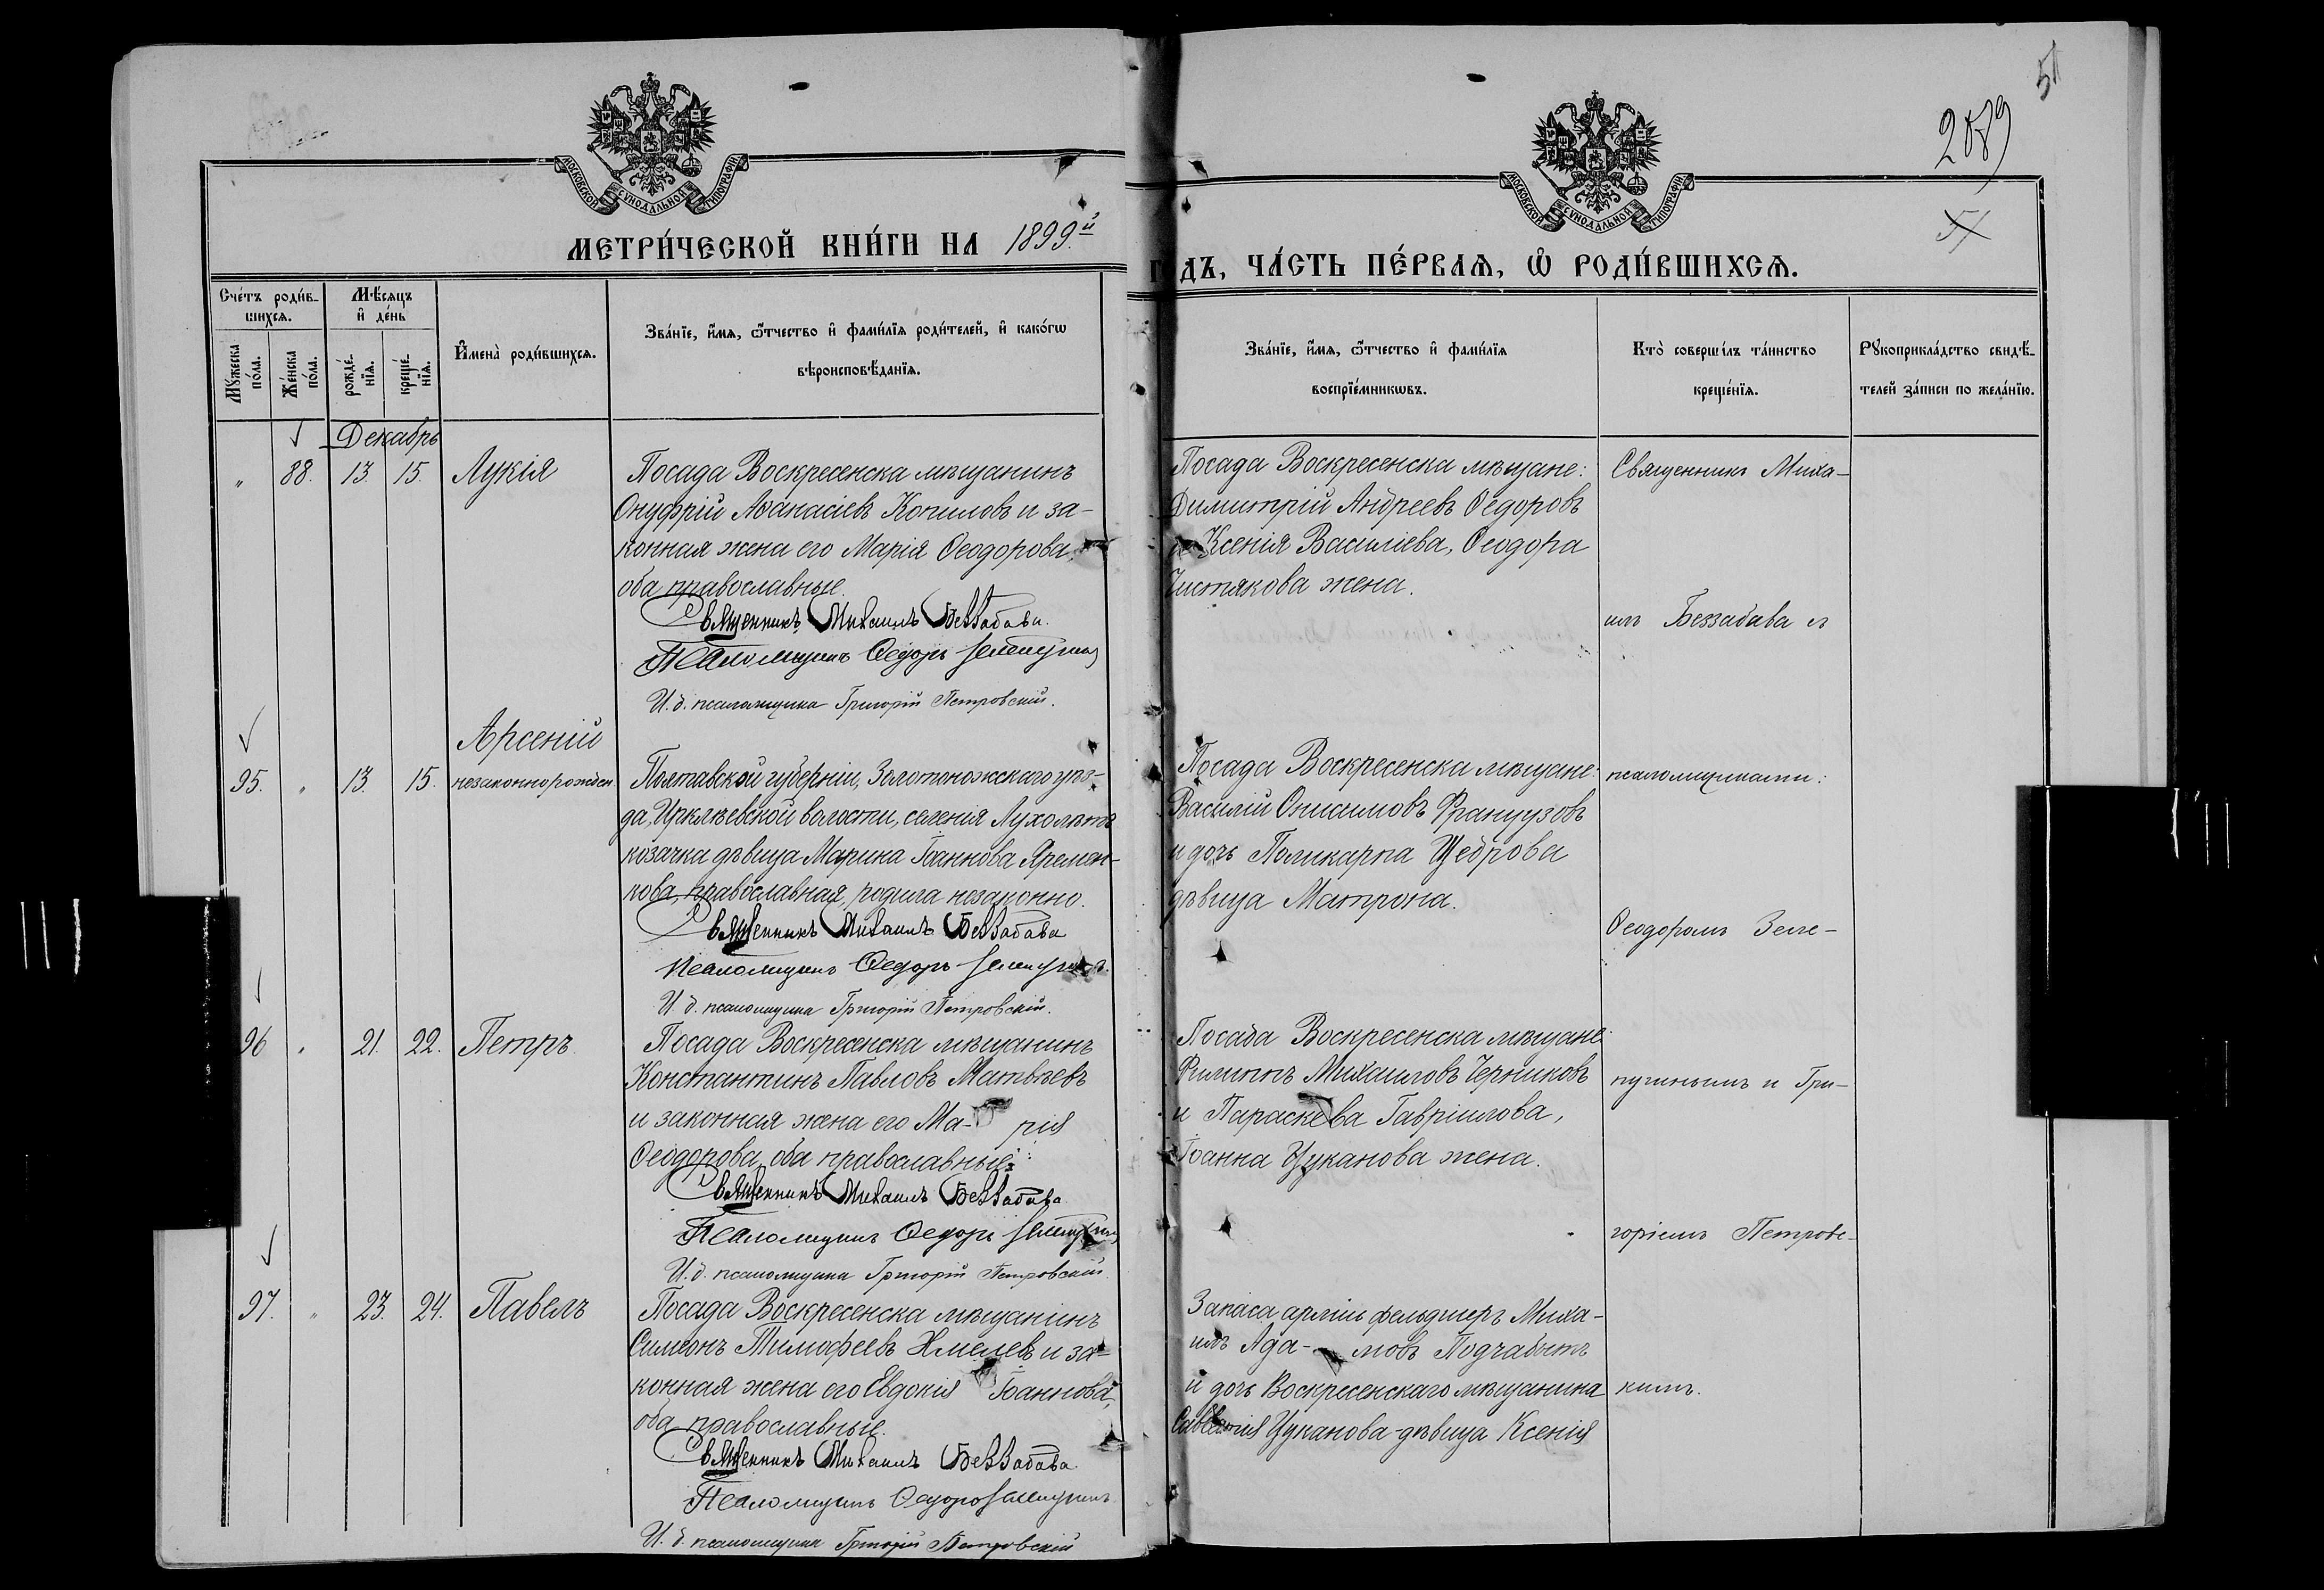 51
2089
51
МОСКОВСКОЙ СѴНОДАЛЬНОЙ ТИПОГРАФІИ
МОСКОВСКОЙ СѴНОДАЛЬНОЙ ТИПОГРАФІИ
МЕТРИ́ЧЕСКОЙ КНИ́ГИ НА 1899й
ГОДЪ, ЧА́СТЬ ПЕ́РВАѦ, Ѡ҆ РОДИ́ВШИХСѦ.
Сче́тъ роди́в-
шихсѧ.
Мꙋ́жеска
по́ла.
Же́нска
по́ла.
Мѣ́сѧцъ
и҆ де́нь
рожде́-
нїѧ.
креще́-
нїѧ.
И҆мена̀ роди́вшихсѧ.
Зва́нїе, и҆́мѧ, ѻ҆́тчество и҆ фами́лїѧ роди́телей, и҆ како́гѡ
вѣроисповѣ́данїѧ.
Зва́нїе, и҆́мѧ, ѻ҆́тчество и҆ фами́лїѧ
воспрїе́мникѡвъ.
Кто̀ соверши́лъ та́инство
креще́нїѧ.
Рꙋкоприкла́дство свидѣ́-
телей за́писи по жела́нїю.
Декабрь
„ 88. 13. 15. Лукія
Посада Воскресенска мѣщанинъ
Онуфрій Аѳанасіевъ Копиловъ и за-
конная жена его Марія Ѳеодорова,
оба православные.
Священникъ Михаилъ Беззабава.
Псаломщикъ Ѳедоръ
И. д. псаломщика Григорій Петровскій.
Посада Воскресенска мѣщане:
Димитрій Андреевъ Ѳедоровъ
и Ксенія Василіева, Ѳеодора
Чистякова жена.
Священникъ Миха-
илъ Беззабава съ
95. „ 13. 15. Арсеній
незаконнорожден.
Полтавской губерніи, Золотоножскаго уѣз-
да, Ирклѣевской волости, селенія
козачка дѣвица Марина Іоаннова Яремен-
кова, православная, родила незаконно.
Священникъ Михаилъ Беззабава
Псаломщикъ Ѳедоръ
И. д. псаломщика Григорій Петровскій.
Посада Воскресенска мѣщане:
Василій Онисимовъ Французовъ
и дочь Поликарпа Щедрова
дѣвица Матрона.
псаломщиками:
Ѳеодоромъ Зеле-
96 „ 21. 22. Петръ
Посада Воскресенска мѣщанинъ
Константинъ Павловъ Матвѣевъ
и законная жена его Ма- рія
Ѳеодорова, оба православные.
Священникъ Михаилъ Беззабава
Псаломщикъ Ѳедоръ
И. д. псаломщика Григорій Петровскій.
Посада Воскресенска мѣщане:
Филиппъ Михаиловъ Черниковъ
и Параскева Гавріилова,
Іоанна Цуканова жена.
пугинымъ и Гри-
горіемъ Петровс-
97. „ 23. 24. Павелъ
Посада Воскресенска мѣщанинъ
Симеонъ Тимофеевъ Хмелевъ и за-
конная жена его Евдокія Іоаннова,
оба православные.
Священникъ Михаилъ Беззабава
Псаломщикъ Ѳедоръ
И. д. псаломщика Григорій Петровскій
Запаса арміи фельдшеръ Миха-
илъ Ада- мовъ
и дочь Воскресенскаго мѣщанина
Цуканова дѣвица Ксенія
кимъ.